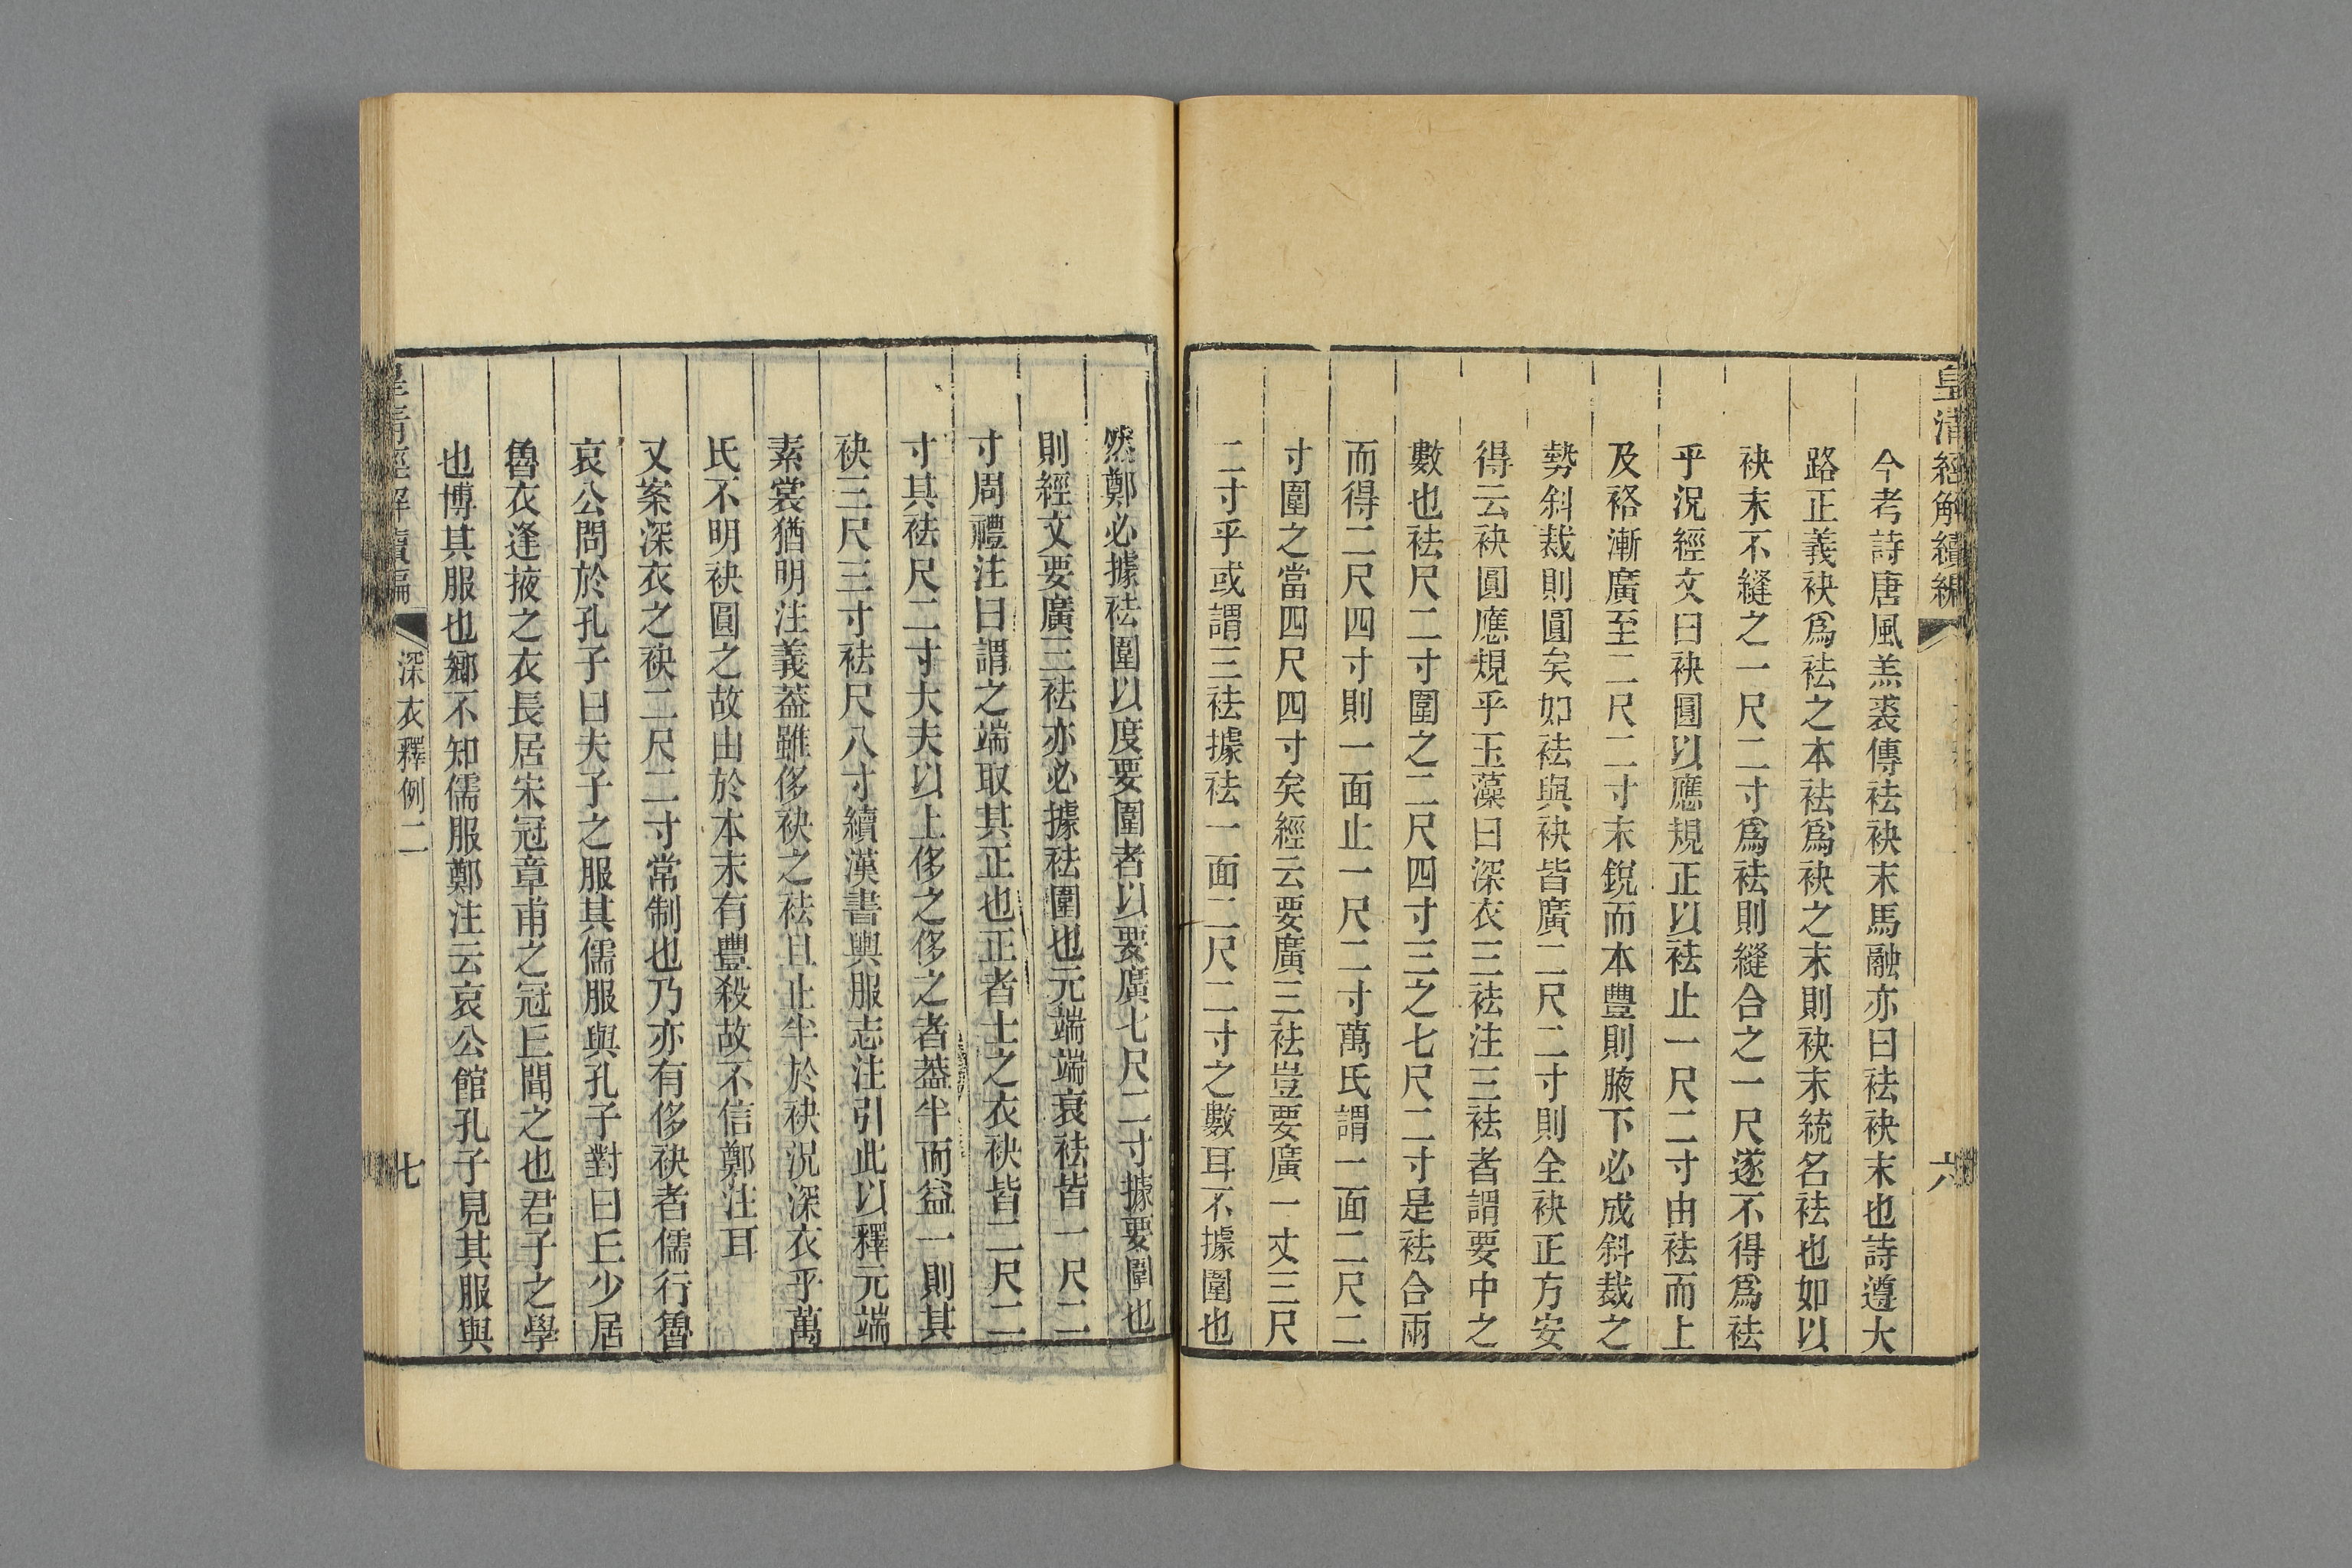 皇清經解續編
六
今考詩唐風羔裘傳袪袂末馬融亦曰袪袂末也詩遵大
路正義袂爲袪之本袪爲袂之末則袂末統名袪也如以
袂末不縫之一尺二寸爲袪則縫合之一尺遂不得爲袪
乎況經文曰袂圓以應規正以袪止一尺二寸由袪而上
及袼漸廣至二尺二寸末銳而本豐則腋下必成斜裁之
勢斜裁則圓矣如袪與袂皆廣二尺二寸則全袂正方安
得云袂圓應規乎玉藻曰深衣三袪注三袪者謂要中之
數也袪尺二寸圍之二尺四寸三之七尺二寸是袪合兩
而得二尺四寸則一面止一尺二寸萬氏謂一面二尺二
寸圍之當四尺四寸矣經云要廣三袪豈要廣一丈三尺
二寸乎或謂三袪據袪一面二尺二寸之數耳不據圍也
然鄭必據袪圍以度要圍者以要廣七尺二寸據要圍也
則經文要廣三袪亦必據袪圍也元端端衰袪皆一尺二
寸周禮注曰謂之端取其正也正者士之衣袂皆二尺二
寸其袪尺二寸大夫以上侈之侈之者葢半而益一則其
袂三尺三寸袪尺八寸續漢書輿服志注引此以釋元端
素裳猶明注義葢雖侈袂之袪且止半於袂況深衣乎萬
氏不明袂圓之故由於本末有豐殺故不信鄭注耳
又案深衣之袂二尺二寸常制也乃亦有侈袂者儒行魯
哀公問於孔子曰夫子之服其儒服與孔子對曰丘少居
魯衣逢掖之衣長居宋冠章甫之冠丘聞之也君子之學
也博其服也鄉不知儒服鄭注云哀公館孔子見其服與
皇清經解續編
深衣釋例二
七